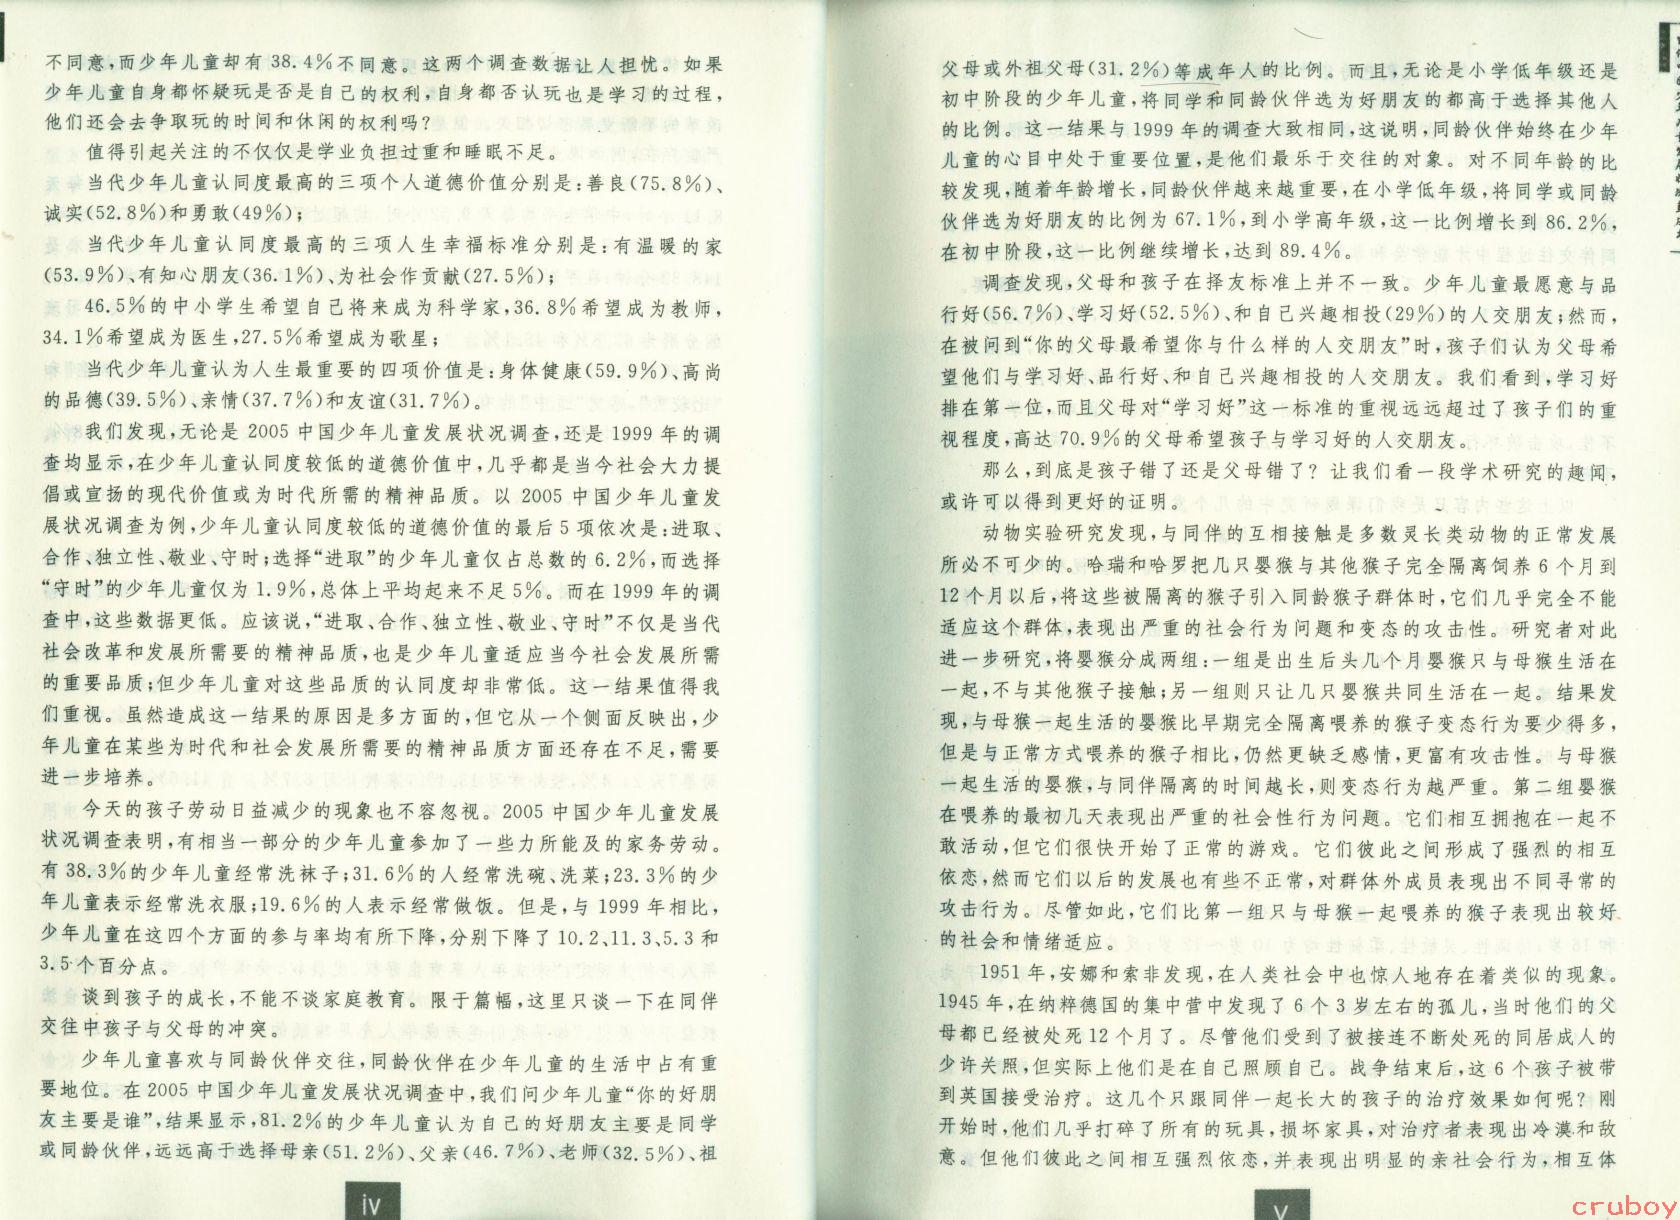 不同意,而少年儿童却有38.4%不同意。这两个调查数据让人担忧。如果
少年儿童自身都怀疑玩是否是自己的权利,自身都否认玩也是学习的过程,
他们还会去争取玩的时间和休闲的权利吗?
值得引起关注的不仅仅是学业负担过重和睡眠不足。
当代少年儿童认同度最高的三项个人道德价值分别是:善良(75.8%)、
诚实(52.8%)和勇敢(49%);
当代少年儿童认同度最高的三项人生幸福标准分别是:有温暖的家
(53.9%)、有知心朋友(36.1%)、为社会作贡献(27.5%);
46.5%的中小学生希望自己将来成为科学家,36.8%希望成为教师,
34.1%希望成为医生,27.5%希望成为歌星;
当代少年儿童认为人生最重要的四项价值是:身体健康(59.9%)、高尚
的品德(39.5%)、亲情(37.7%)和友谊(31.7%)。
我们发现,无论是2005中国少年儿童发展状况调查,还是1999年的调
查均显示,在少年儿童认同度较低的道德价值中,几乎都是当今社会大力提
倡或宣扬的现代价值或为时代所需的精神品质。以2005中国少年儿童发
展状况调查为例,少年儿童认同度较低的道德价值的最后5项依次是:进取、
合作、独立性、敬业、守时;选择“进取”的少年儿童仅占总数的6.2%,而选择
“守时”的少年儿童仅为1.9%,总体上平均起来不足5%。而在1999年的调
查中,这些数据更低。应该说,“进取、合作、独立性、敬业、守时”不仅是当代
社会改革和发展所需要的精神品质,也是少年儿童适应当今社会发展所需
的重要品质;但少年儿童对这些品质的认同度却非常低。这一结果值得我
们重视。虽然造成这一结果的原因是多方面的,但它从一个侧面反映出,少
年儿童在某些为时代和社会发展所需要的精神品质方面还存在不足,需要
进一步培养。
今天的孩子劳动日益减少的现象也不容忽视。2005中国少年儿童发展
状况调查表明,有相当一部分的少年儿童参加了一些力所能及的家务劳动。
有38.3%的少年儿童经常洗袜子;31.6%的人经常洗碗、洗菜;23.3%的少
年儿童表示经常洗衣服;19.6%的人表示经常做饭。但是,与1999年相比,
少年儿童在这四个方面的参与率均有所下降,分别下降了10.2、11.3、5.3和
3.5个百分点。
谈到孩子的成长,不能不谈家庭教育。限于篇幅,这里只谈一下在同伴
交往中孩子与父母的冲突。
少年儿童喜欢与同龄伙伴交往,同龄伙伴在少年儿童的生活中占有重
要地位。在2005中国少年儿童发展状况调查中,我们问少年儿童“你的好朋
友主要是谁”,结果显示,81.2%的少年儿童认为自己的好朋友主要是同学
或同龄伙伴,远远高于选择母亲(51.2%)、父亲(46.7%)、老师(32.5%)、祖
iv
父母或外祖父母(31.2%)等成年人的比例。而且,无论是小学低年级还是
初中阶段的少年儿童,将同学和同龄伙伴选为好朋友的都高于选择其他人
的比例。这一结果与1999年的调查大致相同,这说明,同龄伙伴始终在少年
儿童的心目中处于重要位置,是他们最乐于交往的对象。对不同年龄的比
较发现,随着年龄增长,同龄伙伴越来越重要,在小学低年级,将同学或同龄
伙伴选为好朋友的比例为67.1%,到小学高年级,这一比例增长到86.2%,
在初中阶段,这一比例继续增长,达到89.4%。
调查发现,父母和孩子在择友标准上并不一致。少年儿童最愿意与品
行好(56.7%)、学习好(52.5%)、和自己兴趣相投(29%)的人交朋友;然而,
在被问到“你的父母最希望你与什么样的人交朋友”时,孩子们认为父母希
望他们与学习好、品行好、和自己兴趣相投的人交朋友。我们看到,学习好
排在第一位,而且父母对“学习好”这一标准的重视远远超过了孩子们的重
视程度,高达70.9%的父母希望孩子与学习好的人交朋友。
那么,到底是孩子错了还是父母错了?让我们看一段学术研究的趣闻,
或许可以得到更好的证明。
动物实验研究发现,与同伴的互相接触是多数灵长类动物的正常发展
所必不可少的。哈瑞和哈罗把几只婴猴与其他猴子完全隔离饲养6个月到
12个月以后,将这些被隔离的猴子引入同龄猴子群体时,它们几乎完全不能
适应这个群体,表现出严重的社会行为问题和变态的攻击性。研究者对此
进一步研究,将婴猴分成两组:一组是出生后头几个月婴猴只与母猴生活在
一起,不与其他猴子接触;另一组则只让几只婴猴共同生活在一起。结果发
现,与母猴一起生活的婴猴比早期完全隔离喂养的猴子变态行为要少得多,
但是与正常方式喂养的猴子相比,仍然更缺乏感情,更富有攻击性。与母猴
一起生活的婴猴,与同伴隔离的时间越长,则变态行为越严重。第二组婴猴
在喂养的最初几天表现出严重的社会性行为问题。它们相互拥抱在一起不
敢活动,但它们很快开始了正常的游戏。它们彼此之间形成了强烈的相互
依恋,然而它们以后的发展也有些不正常,对群体外成员表现出不同寻常的
攻击行为。尽管如此,它们比第一组只与母猴一起喂养的猴子表现出较好
的社会和情绪适应。
1951年,安娜和索非发现,在人类社会中也惊人地存在着类似的现象。
1945年,在纳粹德国的集中营中发现了6个3岁左右的孤儿,当时他们的父
母都已经被处死12个月了。尽管他们受到了被接连不断处死的同居成人的
少许关照,但实际上他们是在自己照顾自己。战争结束后,这6个孩子被带
到英国接受治疗。这几个只跟同伴一起长大的孩子的治疗效果如何呢?刚
开始时,他们几乎打碎了所有的玩具,损坏家具,对治疗者表现出冷漠和敌
意。但他们彼此之间相互强烈依恋,并表现出明显的亲社会行为,相互体
v
cruboy